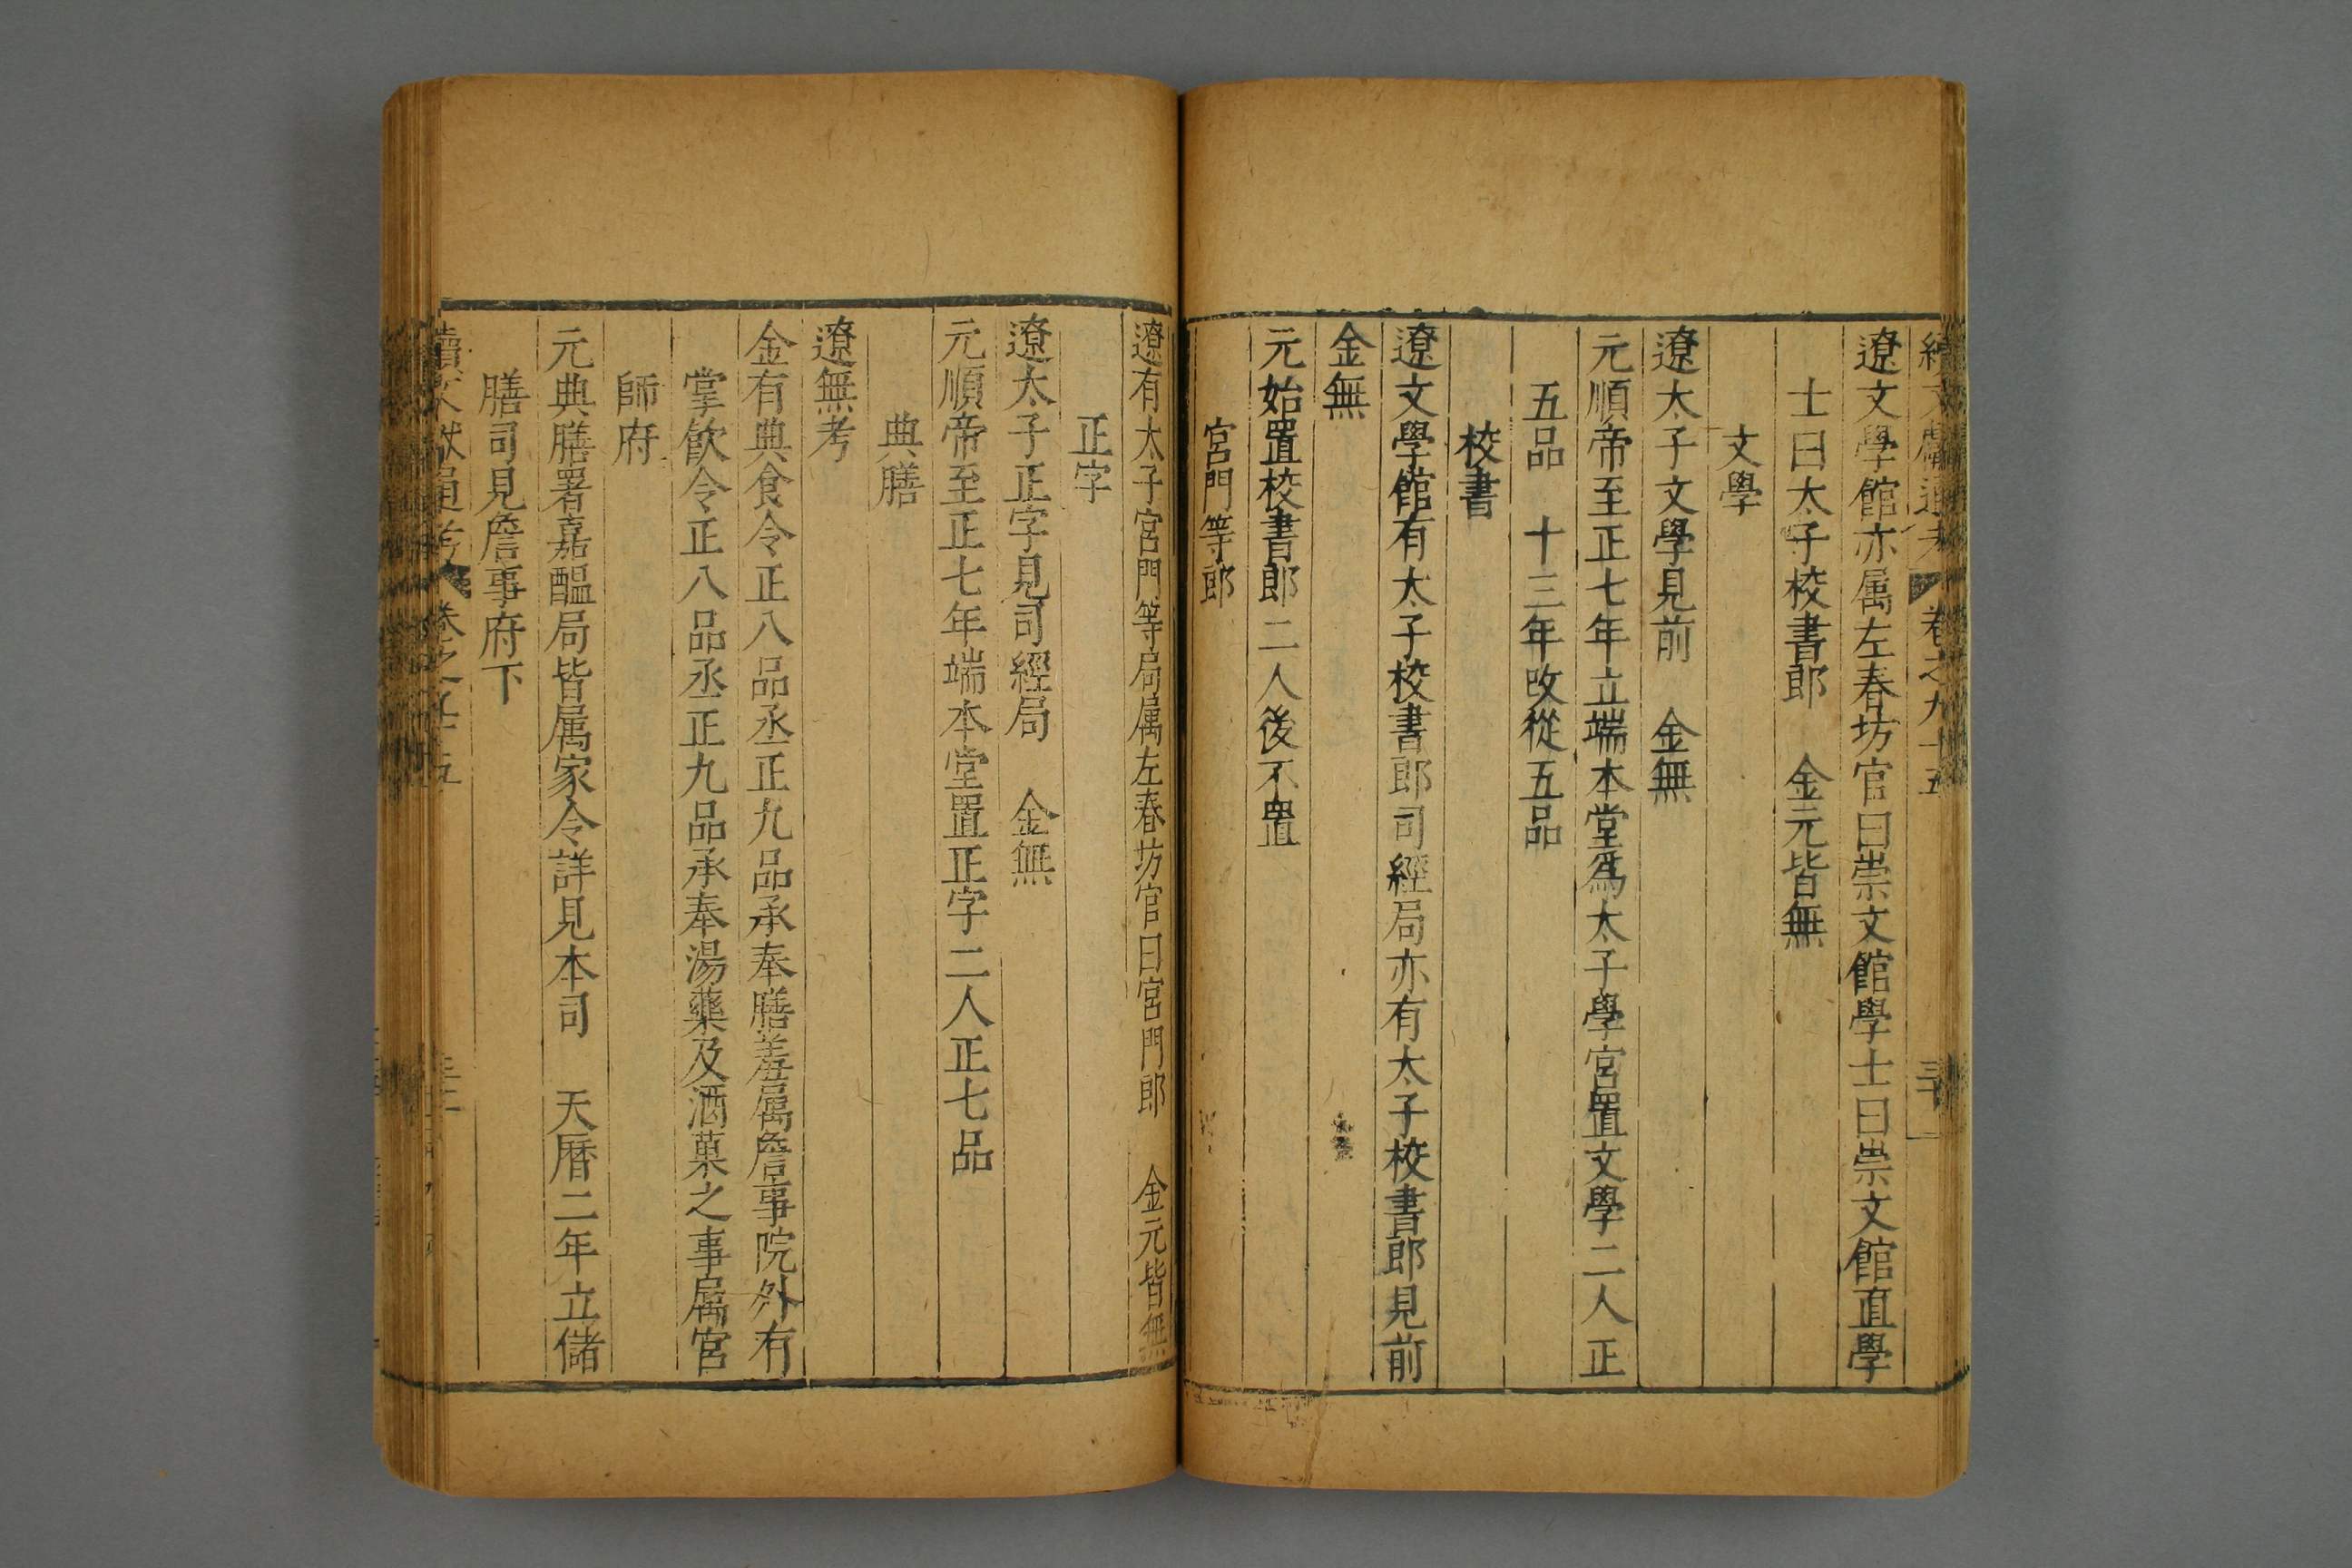 續文獻通考 卷之九十五 三十
遼文學館亦属左春坊官曰崇文館學士曰崇文館直學
士曰太子校書郎 金元皆無
文學
遼太子文學見前 金無
元順帝至正七年立端本堂爲太子學宮置文學二人正
五品 十三年改從五品
校書
遼文學館有太子校書郎司經局亦有太子校書郎見前
金無
元始置校書郎二人後不置
宮門等郎
遼有太子宮門等局属左春坊官曰宮門郎 金元皆無
正字
遼太子正字見司經局 金無
元順帝至正七年端本堂置正字二人正七品
典膳
遼無考
金有典食令正八品丞正九品承奉膳羞属詹事院外有
掌飲令正八品丞正九品承奉湯藥及酒菓之事属宮
師府
元典膳署嘉醞局皆属家令詳見本司 天曆二年立儲
膳司見詹事府下
續文獻通考 卷之九十五